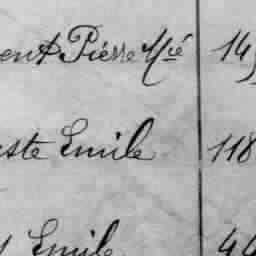 ent Pierre Mié 145
uste Emile 118
Emile 44